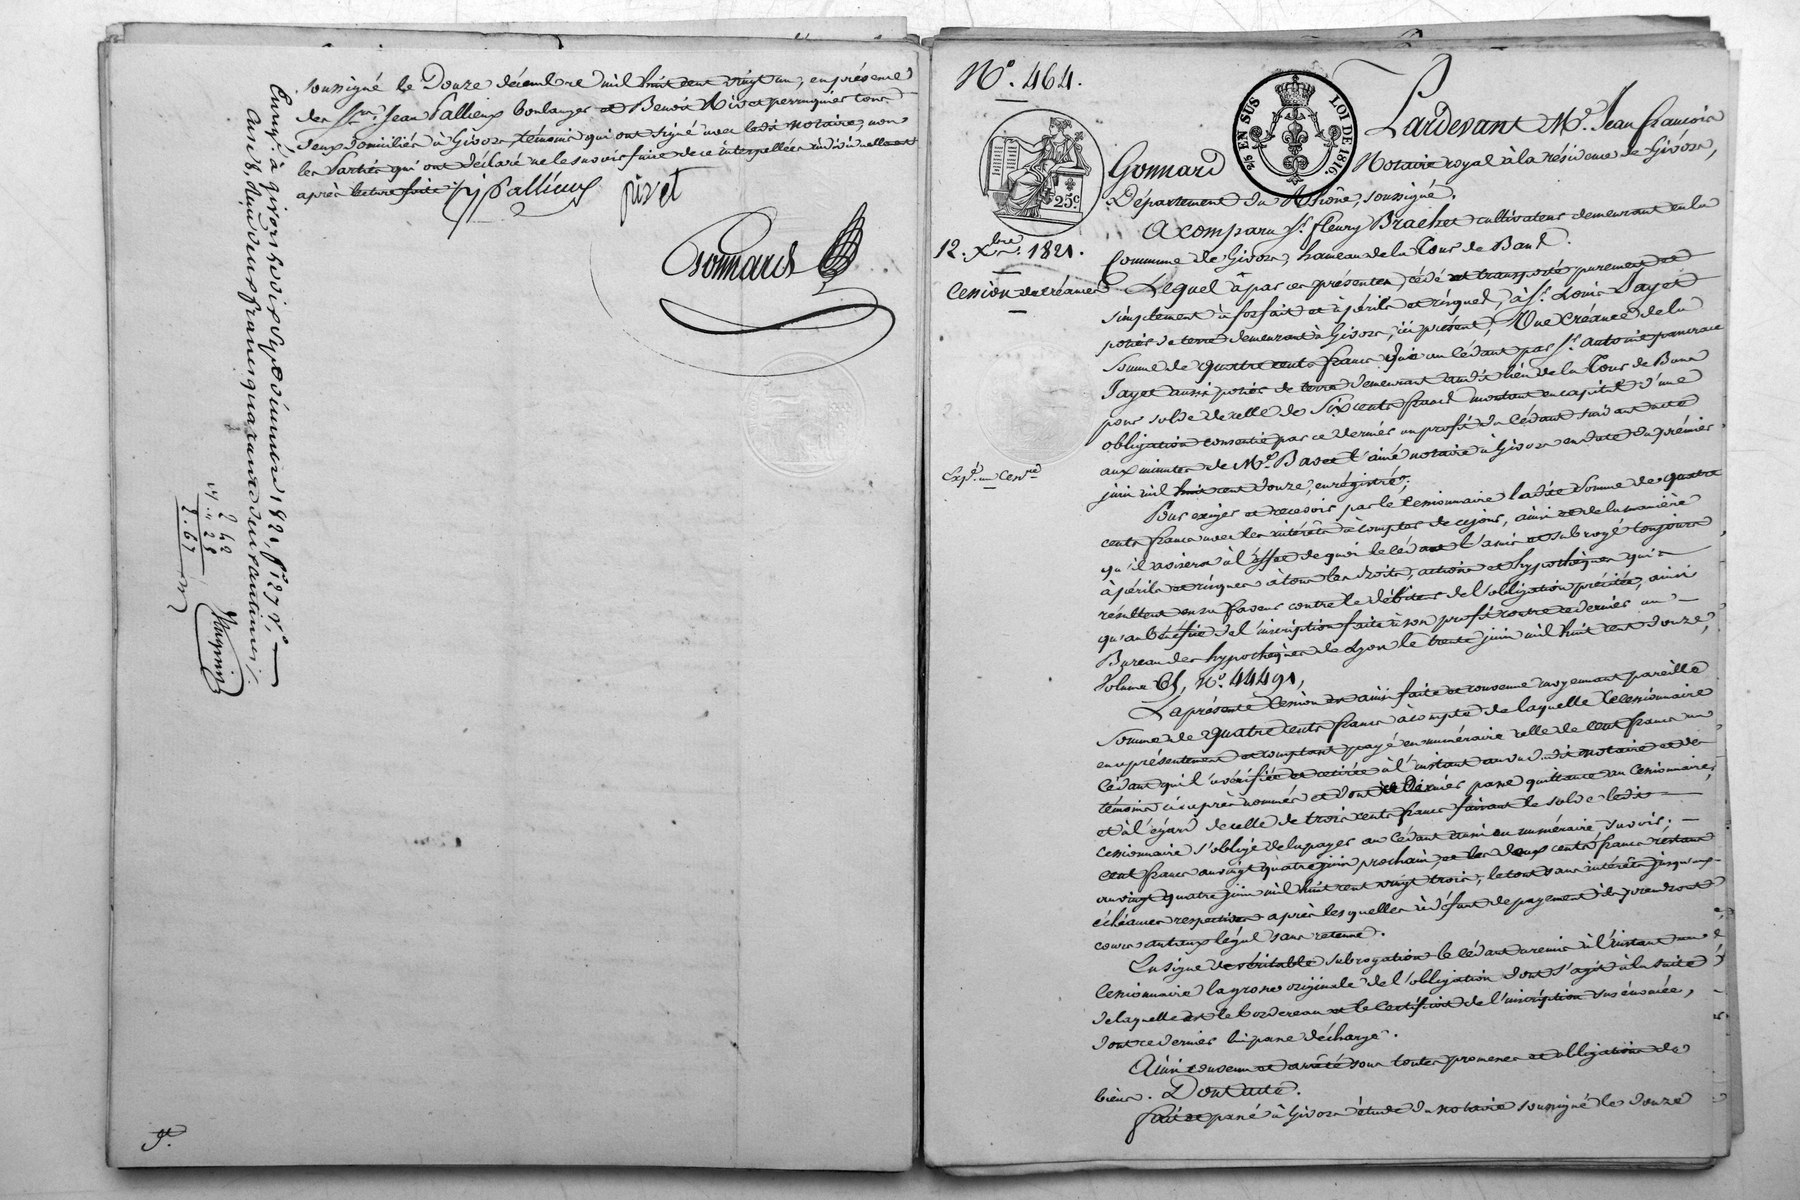 soussigné le Douze décembre mil huit cent vingt un, en présence
des Srs Jean Pallieux boulanger et Benoit Rivet perruquier tous
Deux domiciliés à Givors témoins qui ont signé avec ledit notaire, non
les Parties qui ont déclaré ne le savoir faire de ce interpellées individuellement
après lecture faite.
Pallieux
Gonnard
Enregé à givors le dix sept décembre 1821 fo
deux francs quarante deux centimes
2 42
25
2.67
No. 464.
25 EN SUS
LOI DE 1816.
25c
12. Xbre 1821.
Cession de créance
Expé. un Cesre
Pardevant Me. Jean françois
Gonnard Notaire royal à la résidence de Givors,
Département du Rhône, soussigné,
A comparu Sr. fleury Brachet cultivateur demeurant en la
Commune de Givors, hameau de la Tour de Bans.
Lequel a par ces présentes, cédé et transporté purement et
simplement à forfait et à périls et risques, à Sr. Louis Jayet
potier de terre demeurant à Givors, ici présent, Une Créance de la
Somme de quatre cents francs due au Cédant par Sr. Antoine pancrace
Jayet aussi potier de terre demeurant audit lieu de la Tour de Bans
pour solde de celle de Six cents francs montant en capital d'une
obligation consentie par ce dernier au profit du Cédant suivant acte
aux minutes de Me. Bavet l'ainé notaire à Givors en date du premier
juin mil huit cent douze, enregistré;
Pour exiger et recevoir par le Cessionnaire ladite Somme de quatre
cents francs avec les intérêts à compter de ce jour, ainsi et de la manière
qu'il avisera à l'effet de quoi le cédant l'a mis et subrogé toujours
à périls et risques à tous les droits, actions et hypothèques qui
résultent en sa faveur contre le débiteur de l'obligation précitée, ainsi
qu'au bénéfice de l'inscription faite à son profit contre ce dernier au
Bureau des hypothèques de Lyon le trente juin mil huit cent douze,
Volume 65, No. 44491,
La présente Cession est ainsi faite et convenue moyennant pareille
Somme de quatre cents francs à compte de laquelle le Cessionnaire
en a présentement et comptant payé en numéraire celle de cent francs au
Cédant qui l'a vérifiée et retirée à l'instant au vu dudit notaire et des
témoins ci après nommés et dont ce Dernier passe quittance au Cessionnaire,
et à l'égard de celle de trois cents francs faisant le solde ledit
cessionnaire s'oblige de la payer au Cédant aussi en numéraire, savoir:
cent francs au vingt quatre juin prochain, et les deux cents francs restant
au vingt quatre juin mil huit cent vingt trois, le tout sans intérêts jusqu'aux
échéances respectives après lesquelles à défaut de payement ils prendront
cours au taux légal sans retenue.
En signe de véritable subrogation le cédant a remis à l'instant au
Cessionnaire la grosse originale de l'obligation dont s'agit à la suite
de laquelle est le bordereau et le Certificat de l'inscription sus énoncée,
dont ce dernier lui passe décharge.
Ainsi convenu et arrêté sous toutes promesses et obligations de
biens. Dont acte.
fait et passé à Givors étude du notaire soussigné le douze